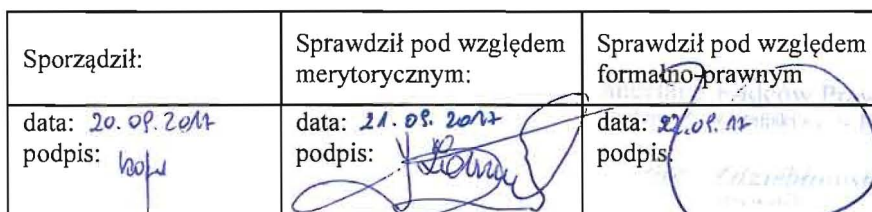 Sporządził:
Sprawdził pod względem
merytorycznym:
Sprawdził pod względem
formalno-prawnym
data: 20.09.2017
podpis:
data: 21.09.2017
podpis:
data: 22.09.17
podpis: